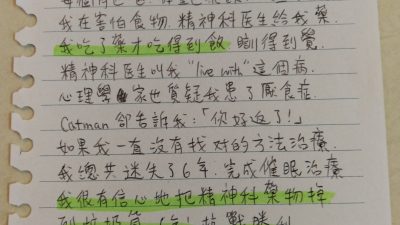 我在害怕食物. 精神科医生給我藥.
我吃了藥才吃得到飯, 瞓得到覺.
精神科医生叫我 "live with" 這個病.
心理學家也質疑我患了厭食症.
Catman 卻告訴我:「你好返了!」
如果我一直沒有找对的方法治療
我總共迷失了6年. 完成催眠治療
我很有信心地把精神科藥物掉